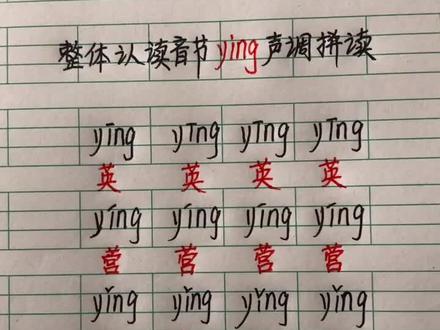 整体认读音节ying声调拼读
yīng yīng yīng yīng
英 英 英 英
yíng yíng yíng yíng
营 营 营 营
yǐng yǐng yǐng yǐng